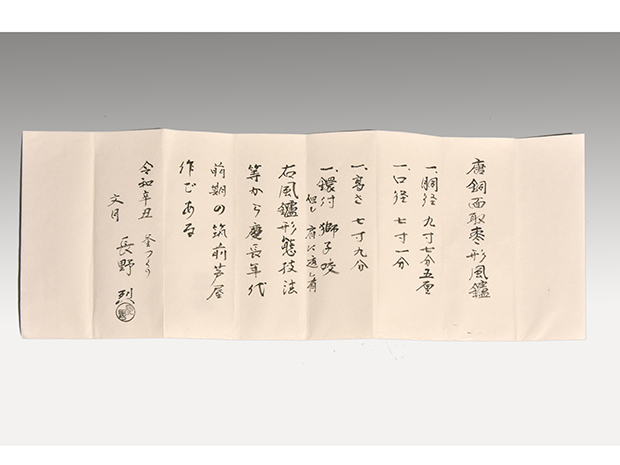 唐銅面取棗形風鑪
一、胴径 九寸七分五厘
一、口径 七寸一分
一、高さ 七寸九分
一、鐶付 獅子咬
但し 肩に透し有
右風鑪形態技法
等から慶長年代
前期の筑前芦屋
作である
令和辛丑 釜つくり
文月 長野 烈